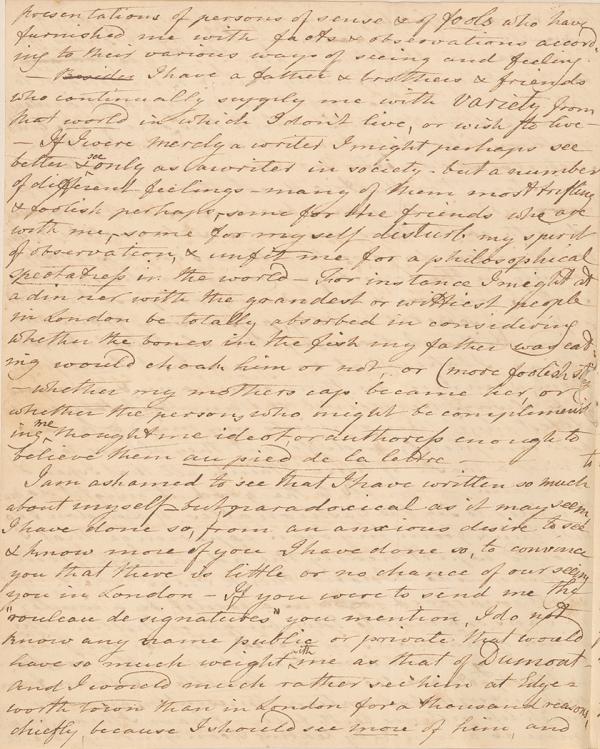 presentations of persons of sense & of fools who have
furnished me with facts & observations accord-
ing to their various ways of seeing and feeling
— Besides I have a father & brothers & friends
who continually supply me with Variety from
that world in which I don't live, or wish to live —
— If I were merely a writer I might perhaps see
better & see only as a writer in society — but a number
of different feelings — many of them most trifling
& foolish perhaps, some for the friends who are
with me, some for myself disturb my spirit
of observation, & unfit me for a philosophical
spectatress in the world — For instance I might at
a dinner with the grandest or wittiest people
in London be totally absorbed in considering
whether the bones in the fish my father was eat-
ing would choak him or not, or (more foolish still)
— whether my mothers cap became her, or
whether the person, who might be compliment-
ing me, thought me ideot, or authoress enough to
believe them au pied de la lettre —
I am ashamed to see that I have written so much
about myself — but paradoxical as it may seem
I have done so, from an anxious desire to see
& know more of you I have done so, to convince
you that there is little or no chance of our seeing
you in London — If you were to send me the
"rouleau de signatures" you mention, I do not
know any name public or private that would
have so much weight with me as that of Dumont
and I would much rather see him at Edge-
worth town than in London for a thousand reasons,
chiefly because I should see more of him, and